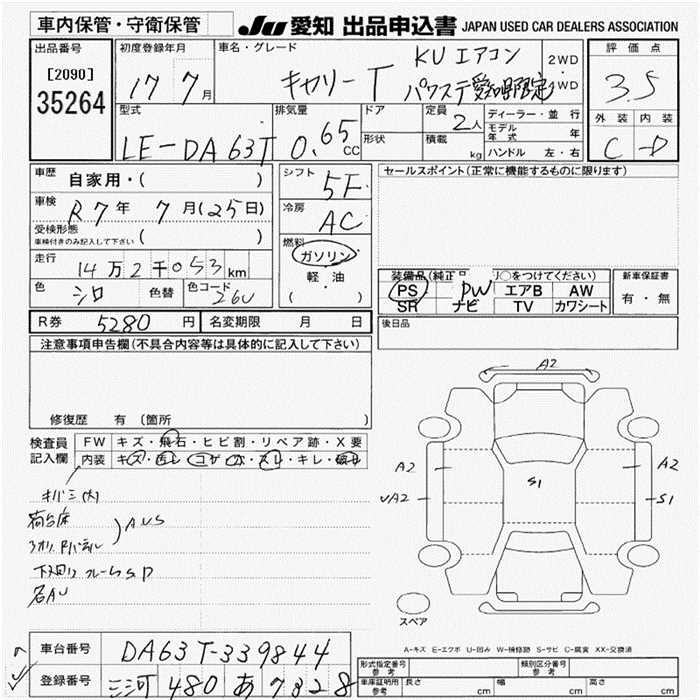 車内保管・守衛保管 JU 愛知 出品申込書 JAPAN USED CAR DEALERS ASSOCIATION
出品番号 初度登録年月 車名・グレード 評価点
[2090] 35264 17 7月 キャリー T KU エアコン パワステ 愛知県限定 2WD・4WD 3.5
外装 内装
C D
型式 LE-DA63T
排気量 0.65 CC
ドア 形状
定員 2人 積載 kg
ディーラー・並行
モデル年式 年
ハンドル 左・右
車歴 自家用・( )
シフト 5F
セールスポイント(正常に機能するものに限ります)
車検 R7年 7月(25日)
冷房 AC
受検形態 ( )
車検付きのみ記入して下さい
燃料 ガソリン 軽・油 ( ・ )
走行 14万2千053km
色 シロ 色替 色コード 26U
装備品(純正 ○をつけてください) 新車保証書
PS PW エアB AW 有・無
SR ナビ TV カワシート
R券 5280円 名変期限 月 日
後日品
注意事項申告欄(不具合内容等は具体的に記入して下さい)
修復歴 有 〔箇所 〕
検査員記入欄
FW キズ・飛石・ヒビ割・リペア跡・X要
内装 キズ・汚レ・コゲ・穴・スレ・キレ・破レ
キバミ 大
荷台床
AUS
下回り フレームSP
名AU
A2
A2 S1 A2
UA2 S1
スペア
A-キズ E-エクボ U-凹み W-補修跡 S-サビ C-腐食 XX-交換済
車台番号 DA63T-339844
登録番号 三河 480 あ 7328
形式指定番号 参考 類別区分番号 参考
車庫証明用 参考 長さ cm 幅 cm 高さ cm